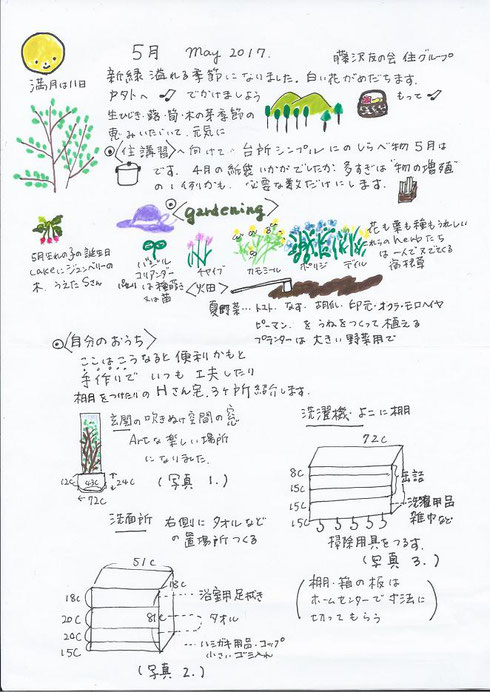 5月 May 2017. 藤沢友の会 住グループ
満月は11日
新緑溢れる季節になりました。白い花がめだちます。
カタトへ♪でかけましよう もって♪
生ひじき・蕗・筍・木の芽季節の
恵みいただいて、元気に
〈住講習〉へ向けて 台所シンプルに のしらべ物 5月は
です. 4月の紙袋いかがでしたか. 多すぎは"物の増殖"
の1例かも. 必要な数だけにします.
〈gardening〉
5月生れの子の誕生日
cakeに.ジューンベリーの
木. うえたSさん
バジル
コリアンダー
又は苗
チャイブ
カモミール
ボリジ
ディル
花も葉も種もうれしい
これらのherbたち
は一人で大でくる
宿根草
〈畑〉
夏野菜…トマト. なす. 胡瓜. 印元・オクラ・モロヘイヤ
ピーマン. をうねをつくって植える
プランターは大きい野菜用で
〈自分のおうち〉
ここはこうなると便利かもと
手作りでいつも工夫したり
棚をつけたりのHさん宅.3ヶ所紹介します.
玄関の吹きぬけ空間の窓
Artな楽しい場所
になりました.
12C 43C 24C
72C
(写真 1.)
洗濯機・よこに棚
72C
8C
15C
15C
15C
缶詰
洗濯用品
雑巾など
掃除用具をつるす.
(写真 3.)
洗面所 右側にタオルなど
の置場所つくる
51C
18C
18C
20C
20C
15C
81C
浴室用足拭き
タオル
ハミガキ用品・コップ
小さいゴミ入れ
(写真 2.)
(棚・箱の板は
ホームセンターで寸法に
切ってもらう)